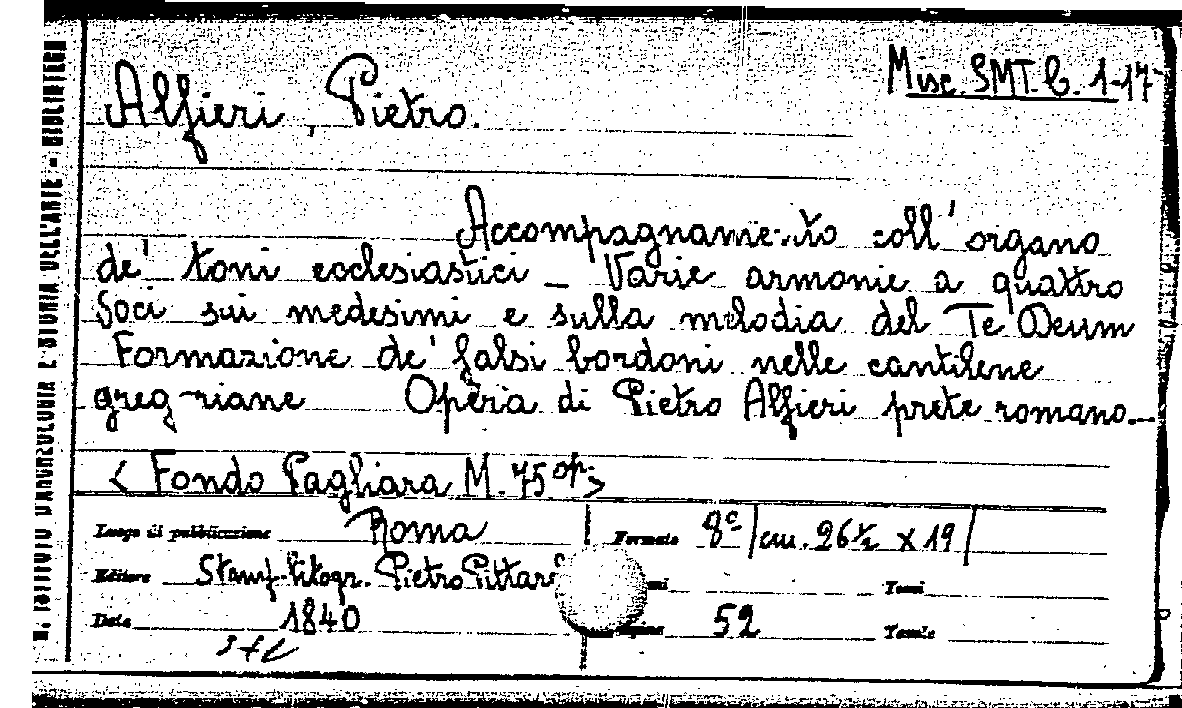 Misc. SMT. b. 1-17
Alfieri, Pietro.
Accompagnamento coll' organo
de' toni ecclesiastici _ Varie armonie a quattro
Voci sui medesimi e sulla melodia del Te Deum
Formazione de' falsi bordoni nelle cantilene
gregoriane Opera di Pietro Alfieri prete romano._
< Fondo Pagliara M. 75 op. >
Luogo di pubblicazione Roma Formato 8º /cm. 26½ x 19/
Editore Stamp. Litogr. Pietro Pittar Tomi
Data 1840 52 Tavole
R. ISTITUTO D'ARCHEOLOGIA E STORIA DELL'ARTE - BIBLIOTECA